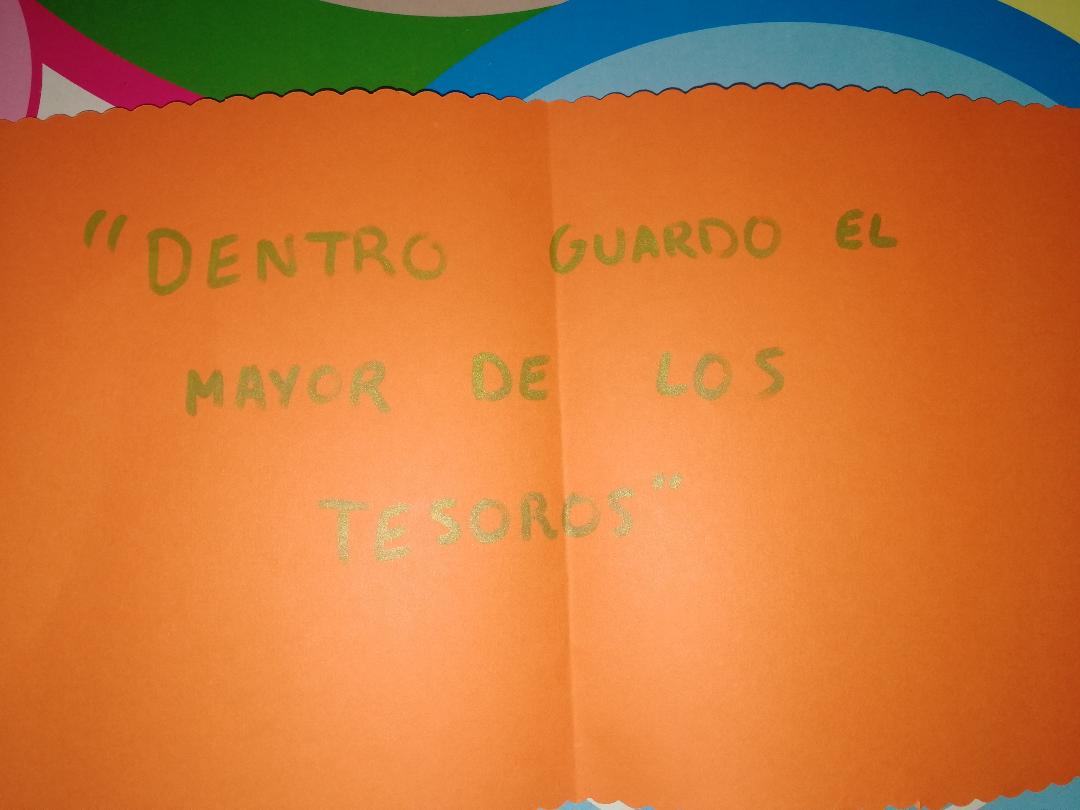 "DENTRO GUARDO EL
MAYOR DE LOS
TESOROS"